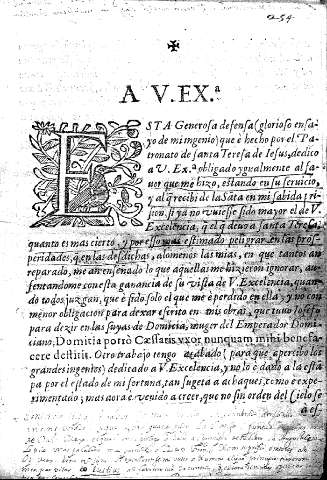 254
✠
A V. EX.ª
ESTA Generosa defensa (glorioso ensa
yo de mi ingenio) que è hecho por el Pa-
tronato de santa Teresa de Iesus, dedico
a V. Ex.ª obligado ygualmente al fa-
uor que me hizo, estando en su seruicio,
y al q̃ recibi de la Sãta en mi sabida pri-
sion, si ya no vuiesse sido mayor el de V.
Excelencia, q̃ el q̃ deuo a santa Teresa;
quanto es mas cierto, y por esso mas estimado peligrar en las pros-
peridades, q̃ en las desdichas, alomenos las mias, en que tantos an
reparado, me an enseñado lo que aquellas me hizieron ignorar, au-
sentandome con esta ganancia de su vista de V. Excelencia, quan-
do todos juzgan, que è sido solo el que me è perdido en ella, y no con
menor obligacion para dexar escrito en mis obras, que tuuo Iosefo
para dezir en las suyas de Domicia, muger del Emperador Domi-
ciano. Domitia porrò Cæsaris vxor nunquam mihi benefa-
cere destitit. Otro trabajo tengo acabado (para que apercibo los
grandes ingenios) dedicado a V. Excelencia, y no lo è dado a la està-
pa por el estado de mi fortuna, tan sugeta a achaques, como è ex-
perimentado; mas aora è venido a creer, que no sin orden del Cielo se
a es-